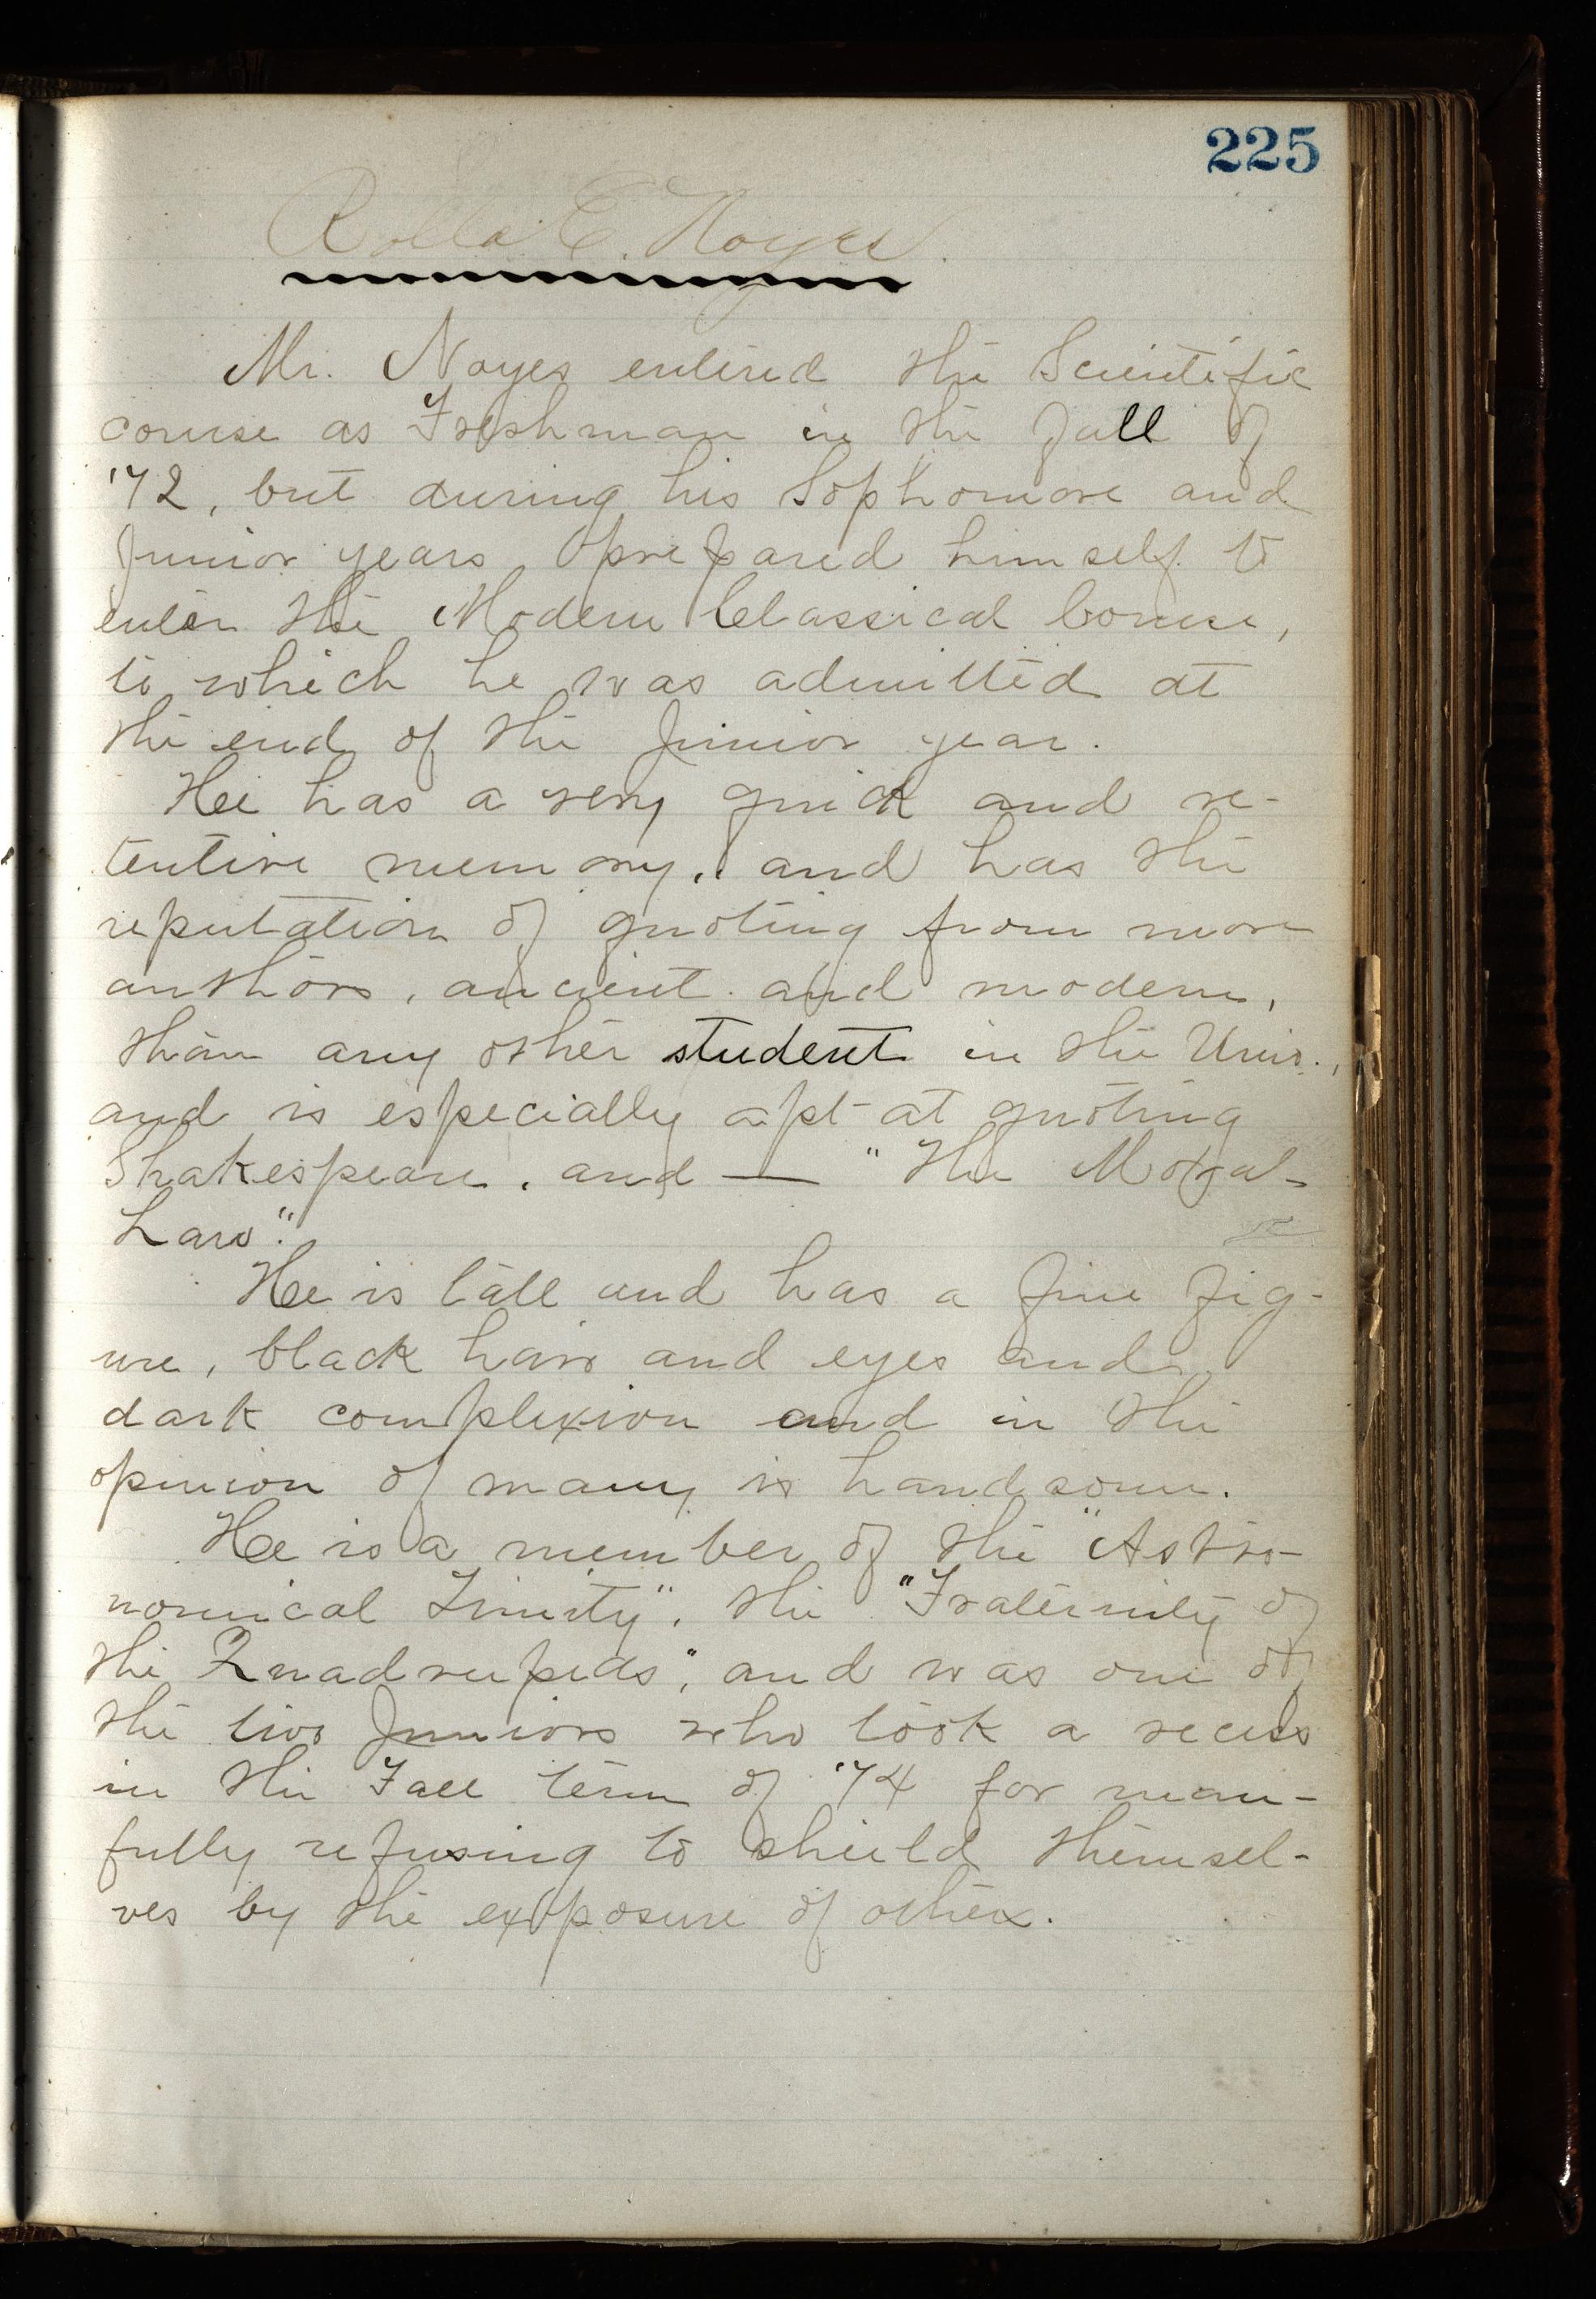 225
Rolla E. Noyes.
Mr. Noyes entered the Scientific
course as Freshman in the fall of
'72, but during his Sophomore and
Junior years prepared himself to
enter the Modern Classical Course,
to which he was admitted at
the end of the Junior year.
He has a very quick and re-
tentive memory, and has the
reputation of quoting from more
authors, ancient and modern,
than any other student in the Univ.,
and is especially apt at quoting
Shakespeare, and — "The Moral
Law".
He is tall and has a fine fig-
ure, black hair and eyes and
dark complexion and in the
opinion of many is handsome.
He is a member of the "Astro-
nomical Trinity", the "Fraternity of
the Quadrupeds", and was one of
the two Juniors who took a recess
in the Fall term of '74 for man-
fully refusing to shield themsel-
ves by the exposure of others.